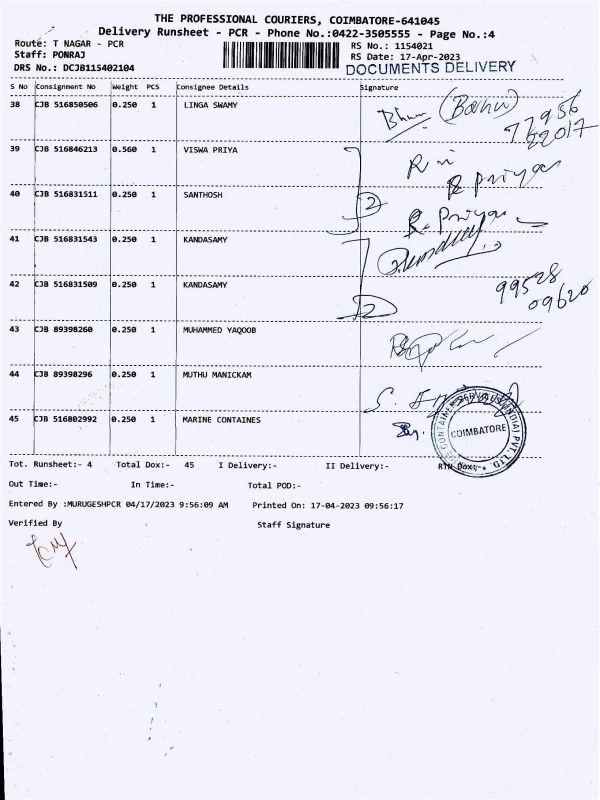 THE PROFESSIONAL COURIERS, COIMBATORE-641045
Delivery Runsheet - PCR - Phone No.:0422-3505555 - Page No.:4
Route: T NAGAR - PCR
RS No.: 1154021
Staff: PONRAJ
RS Date: 17-Apr-2023
DRS No.: DCJB115402104
DOCUMENTS DELIVERY
S No Consignment No Weight PCS Consignee Details Signature
38 CJB 516850506 0.250 1 LINGA SWAMY
77956
22017
39 CJB 516846213 0.560 1 VISWA PRIYA
R. Priya
40 CJB 516831511 0.250 1 SANTHOSH 2
R. Priya
41 CJB 516831543 0.250 1 KANDASAMY
42 CJB 516831509 0.250 1 KANDASAMY 2
99528
09620
43 CJB 89398260 0.250 1 MUHAMMED YAQOOB
44 CJB 89398296 0.250 1 MUTHU MANICKAM
45 CJB 516802992 0.250 1 MARINE CONTAINES
COIMBATORE
Tot. Runsheet:- 4 Total Dox:- 45 I Delivery:- II Delivery:- RTN Dox:-
Out Time:- In Time:- Total POD:-
Entered By :MURUGESHPCR 04/17/2023 9:56:09 AM Printed On: 17-04-2023 09:56:17
Verified By Staff Signature